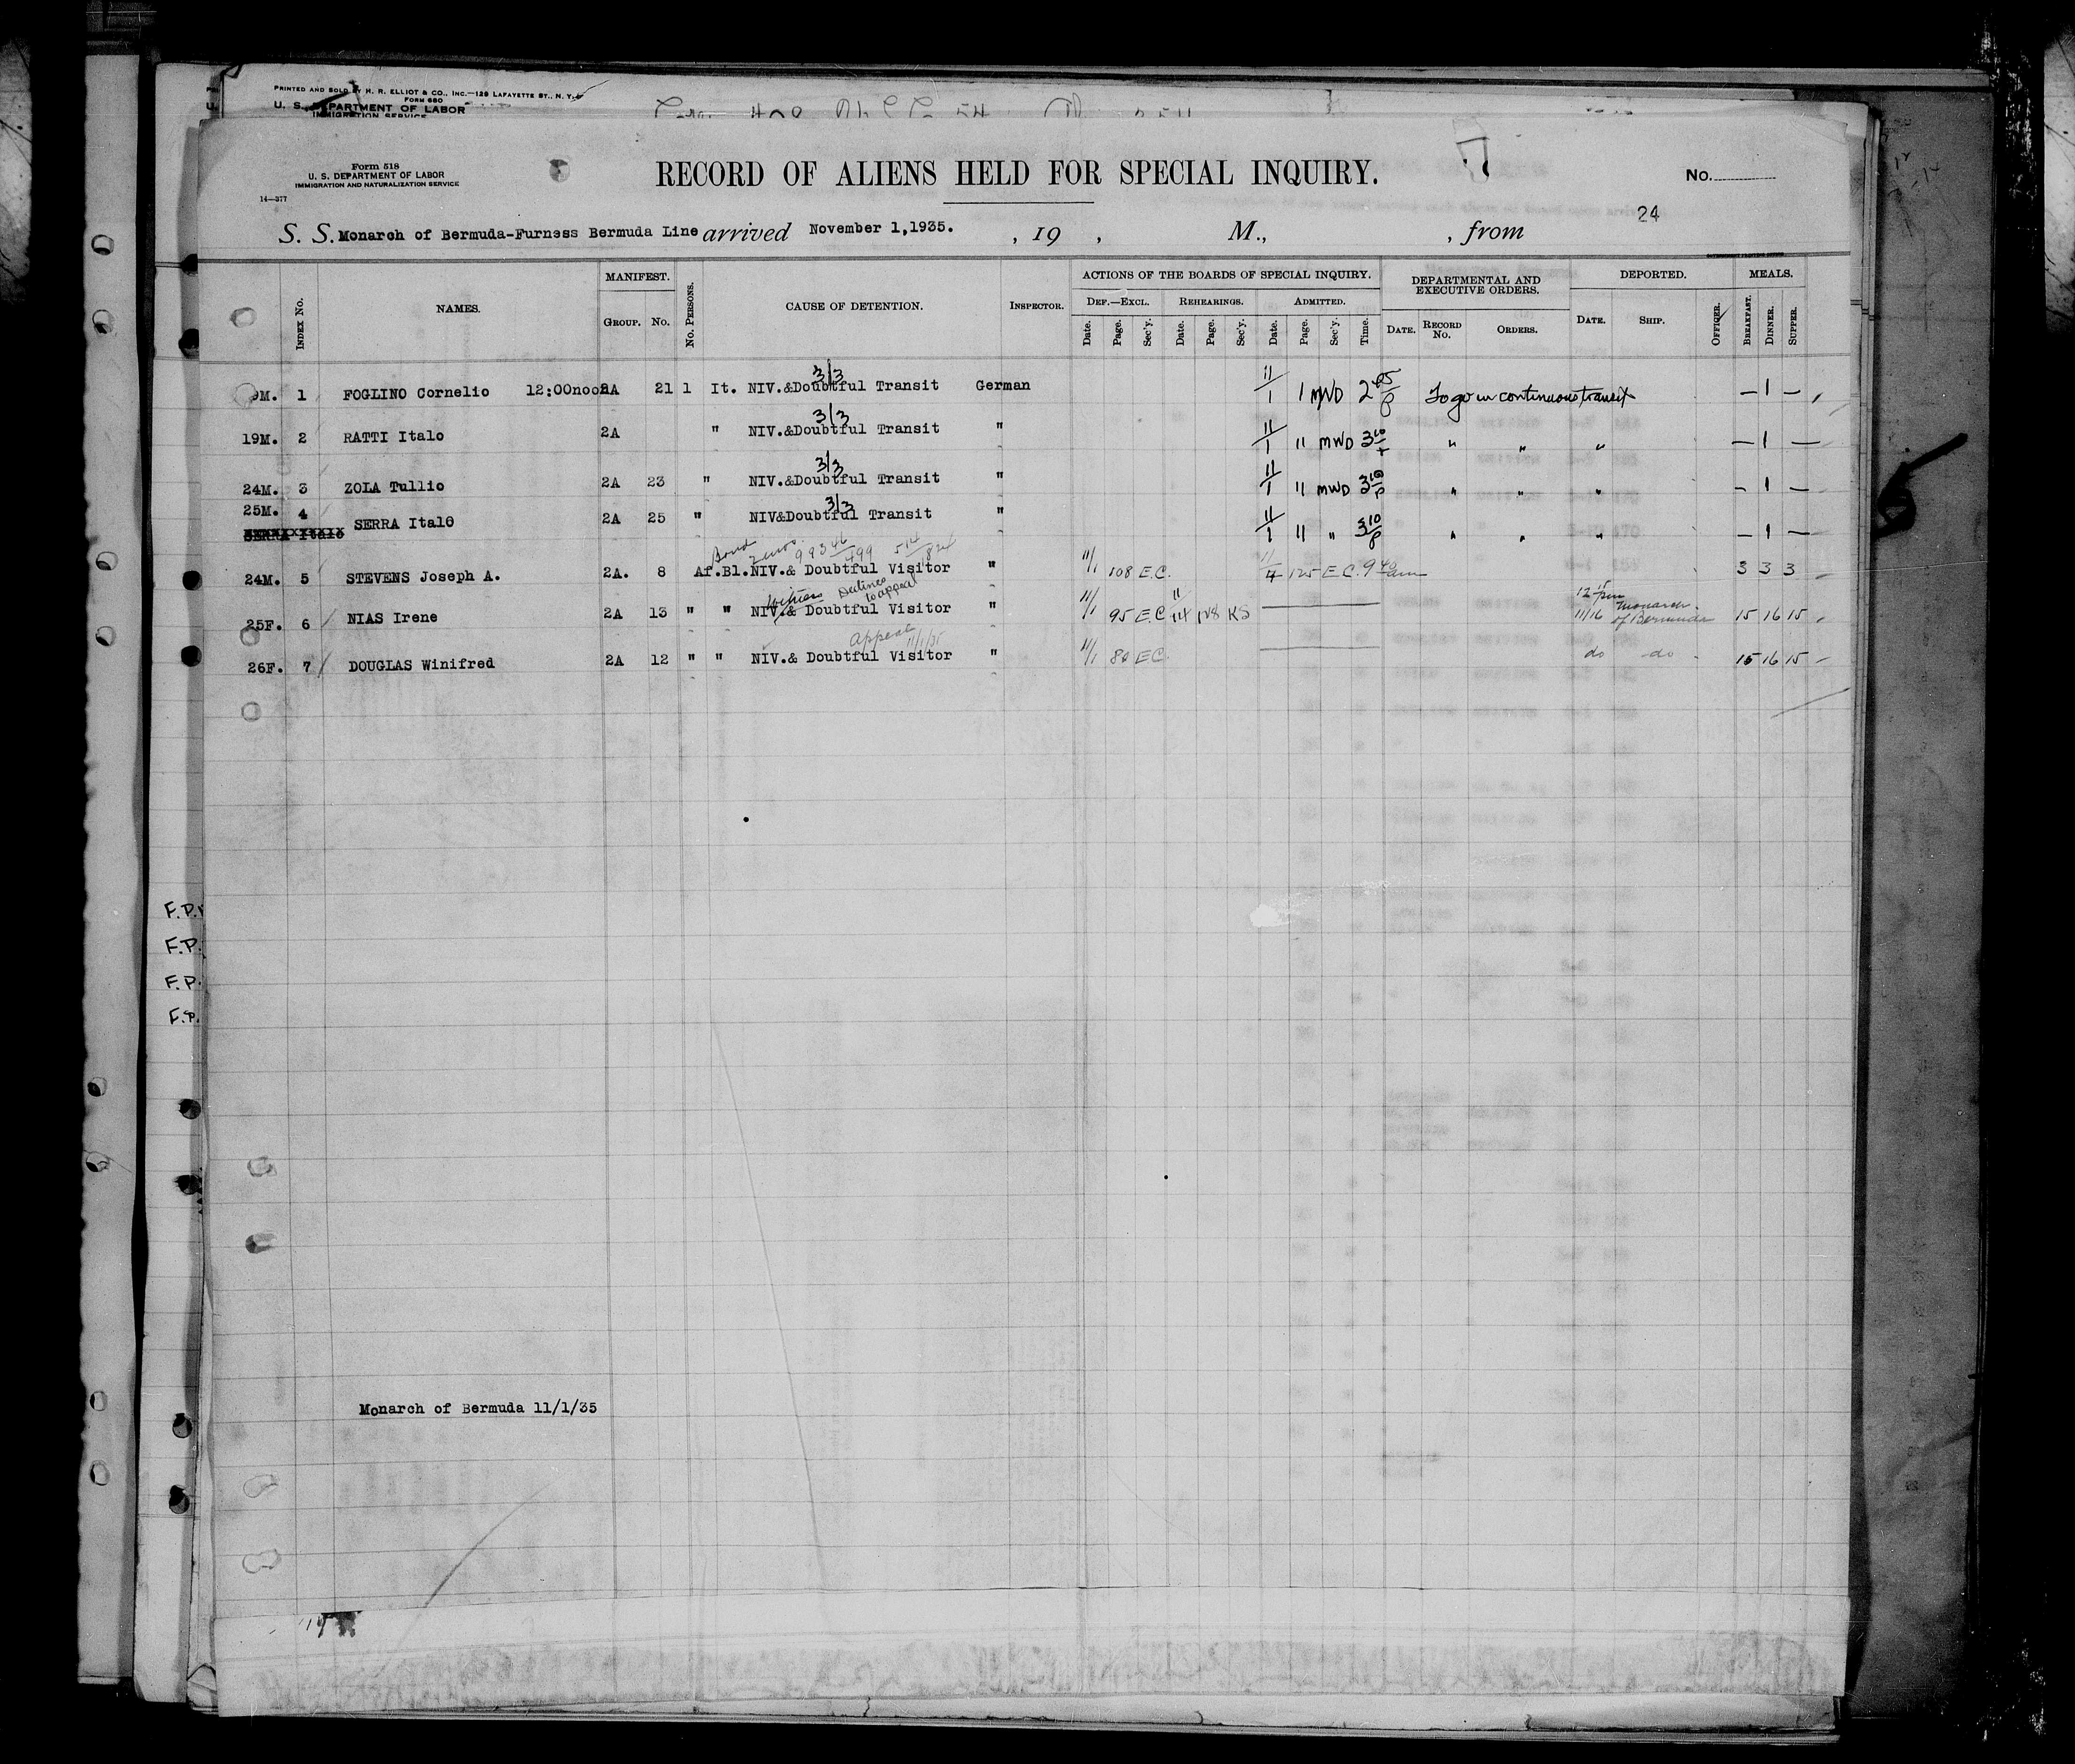 PRINTED AND SOLD BY H. R. ELLIOT & CO., INC.—129 LAFAYETTE ST., N. Y.
FORM 680
U. S. DEPARTMENT OF LABOR
IMMIGRATION SERVICE
Form 518
U. S. DEPARTMENT OF LABOR
IMMIGRATION AND NATURALIZATION SERVICE
14—377
RECORD OF ALIENS HELD FOR SPECIAL INQUIRY.
No.
24
S. S. Monarch of Bermuda-Furness Bermuda Line arrived November 1,1935. , 19 , M., , from
INDEX No. NAMES. MANIFEST. GROUP. No. No. PERSONS. CAUSE OF DETENTION. INSPECTOR. ACTIONS OF THE BOARDS OF SPECIAL INQUIRY. DEPARTMENTAL AND EXECUTIVE ORDERS. DEPORTED. MEALS.
DEF.—EXCL. REHEARINGS. ADMITTED.
Date. Page. Sec'y. Date. Page. Sec'y. Date. Page. Sec'y. Time. DATE. RECORD No. ORDERS. DATE. SHIP. OFFICER. BREAKFAST. DINNER. SUPPER.
3/3
9M. 1 FOGLINO Cornelio 12:00noon 2A 21 1 It. NIV.&Doubtful Transit German 11/1 1 MWD 2 05 P To go in continuous transit — 1 —
3/3
19M. 2 RATTI Italo 2A " NIV.&Doubtful Transit " 11/1 " MWD 3 10 " " " — 1 —
3/3
24M. 3 ZOLA Tullio 2A 23 " NIV.&Doubtful Transit " 11/1 " MWD 3 10 P " " " — 1 —
3/3
25M. 4 SERRA Italo 2A 25 " NIV&Doubtful Transit " 11/1 " " 3 10 P " " " — 1 —
SERRA Italo
Bond
24M. 5 STEVENS Joseph A. 2A. 8 Af.Bl. NIV.& Doubtful Visitor " 11/1 108 E.C. 11/4 125 E.C. 9 40 am 3 3 3
Witness Declines to appeal
25F. 6 NIAS Irene 2A 13 " " NIV.& Doubtful Visitor " 11/1 95 E.C 11/14 128 KS 12 15 pm 11/16 Monarch of Bermuda 15 16 15
Appeal 11/1/35
26F. 7 DOUGLAS Winifred 2A 12 " " NIV.& Doubtful Visitor " 11/1 80 EC. do do 15 16 15
F.P.
F.P.
F.P.
F.P.
Monarch of Bermuda 11/1/35